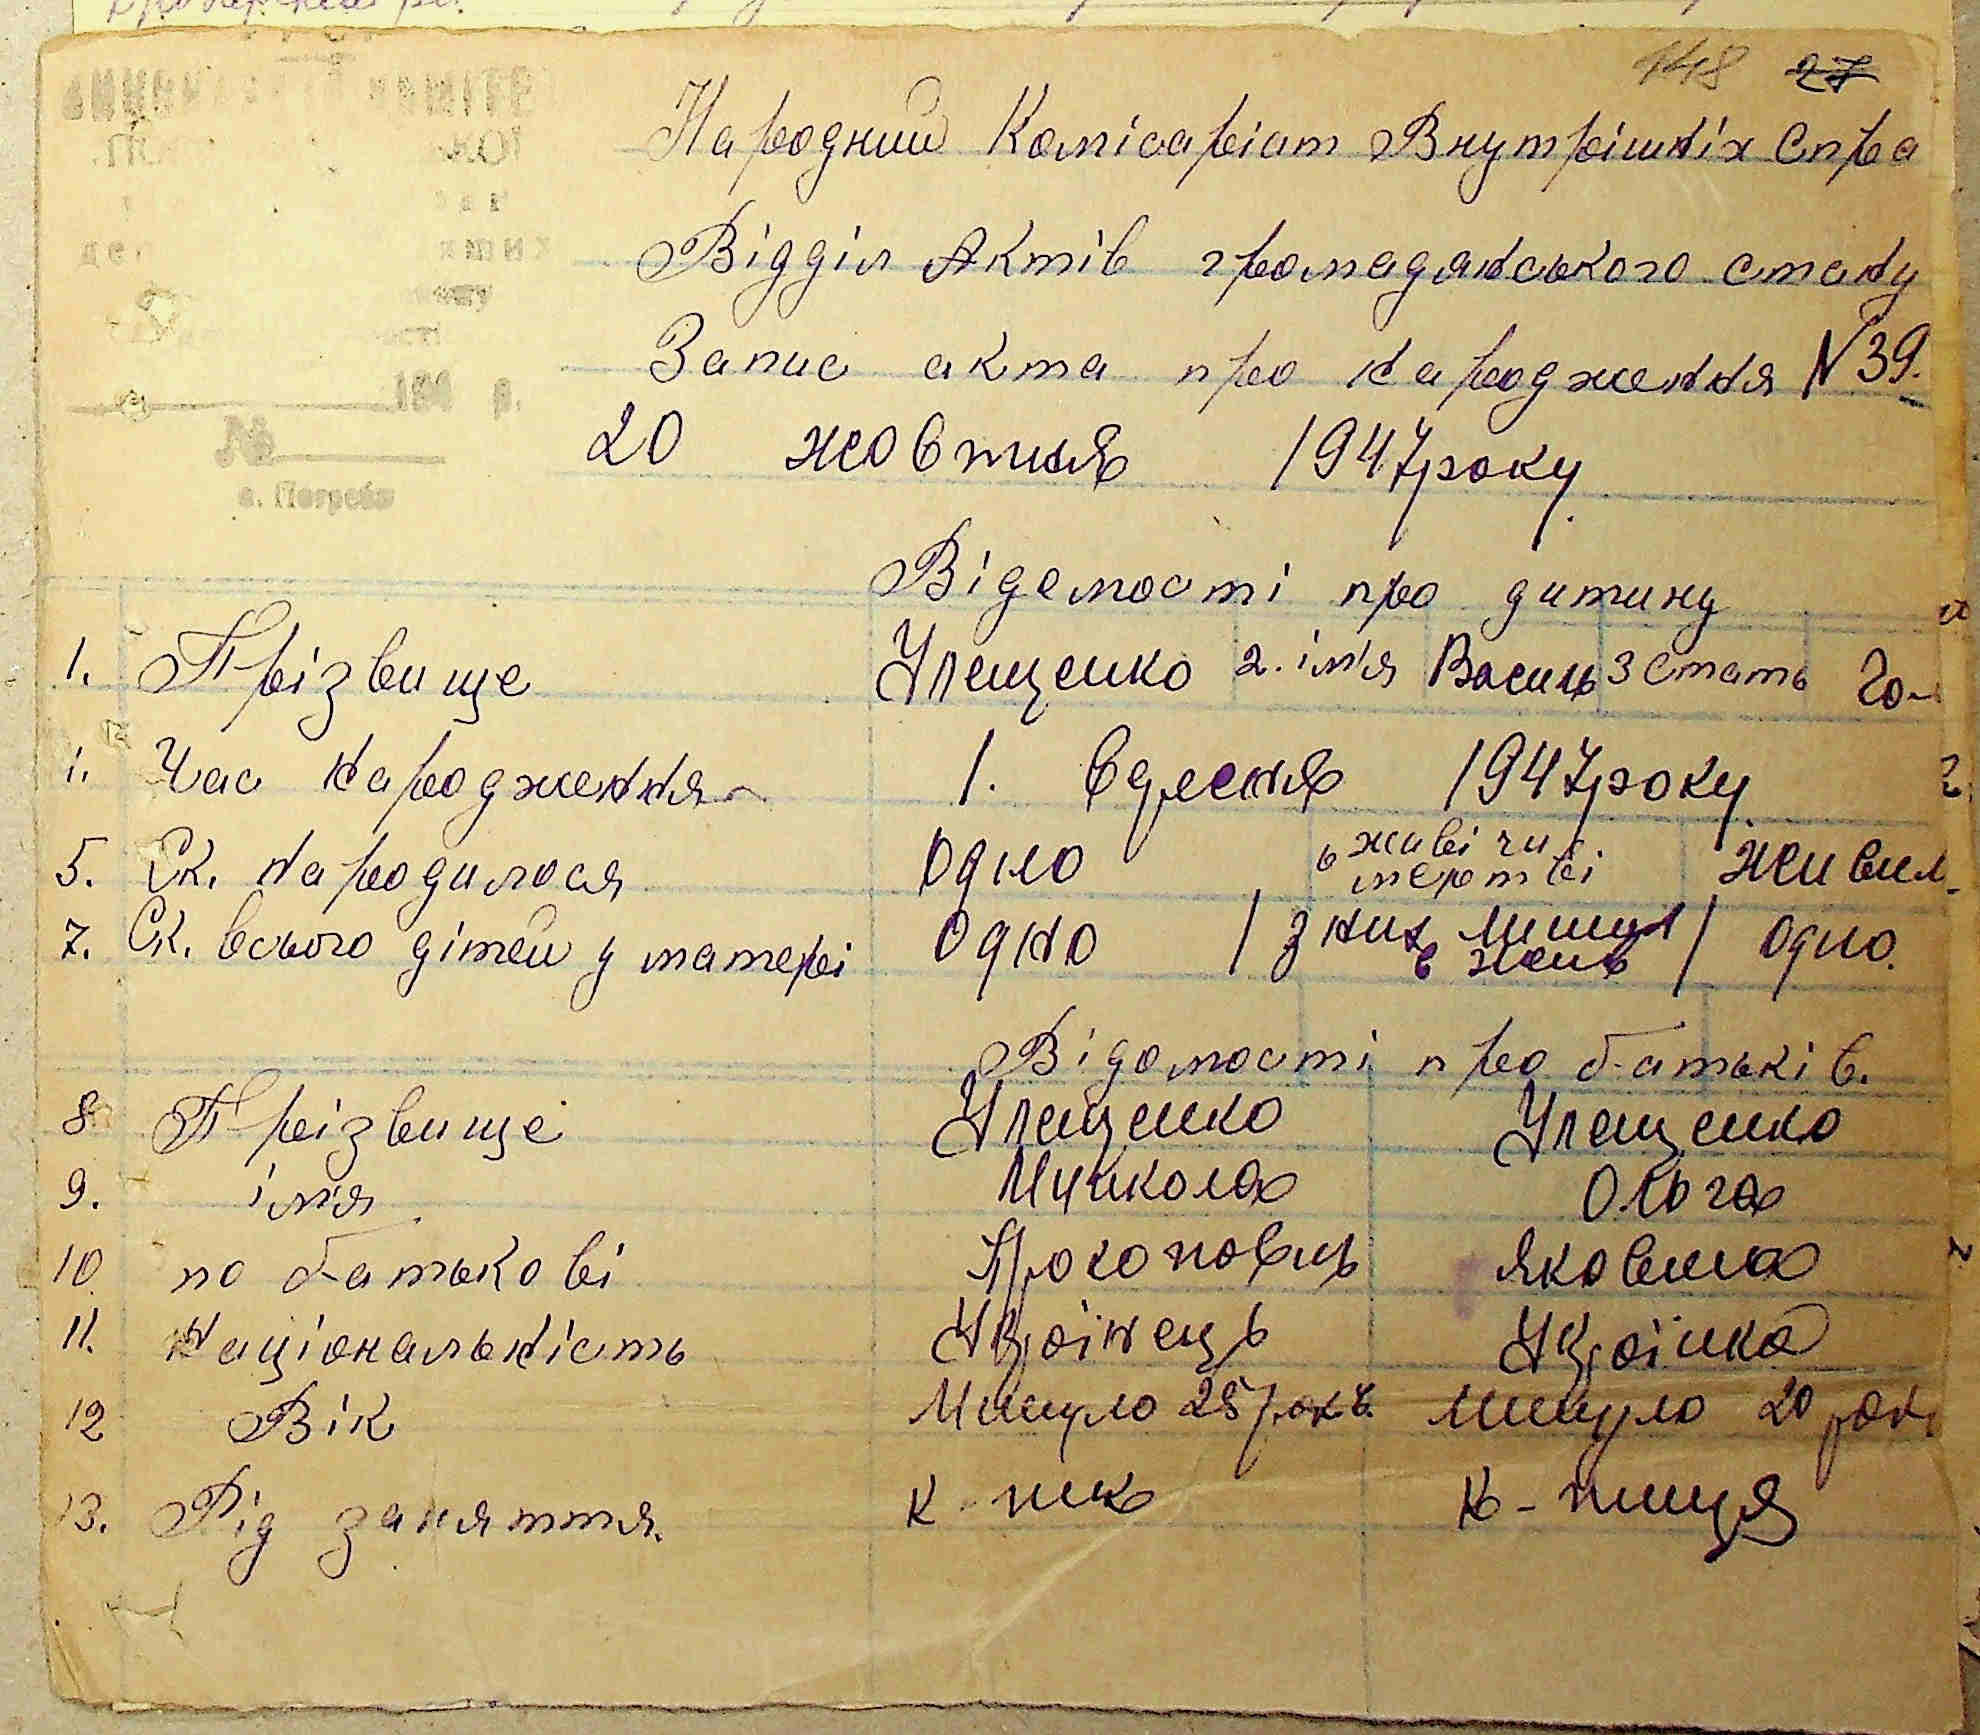 148 27
Народний Комісаріат Внутрішніх Спра
Відділ Актів громадянського стану
Запис акта про народження N 39.
194 р.
№
с. Погреби
20 жовтня 1947 року
Відомості про дитину
1. Прізвище Улещенко 2. ім'я Василь 3 Стать Чо-
Час народження 1. вересня 1947 року
5. Ск. народилося Одно 6 живі чи мертві живим
7. Ск. всього дітей у матері Одно / з них лишил в жив / Одно.
Відомості про батьків.
8 Прізвище Улещенко Улещенко
9. ім'я Микола Ольга
10 по батькові Прокопович Яковлена
11. національність Українець Українка
12 Вік Минуло 25 рок. Минуло 20 рок
13. Рід заняття. к-ник к-ниця